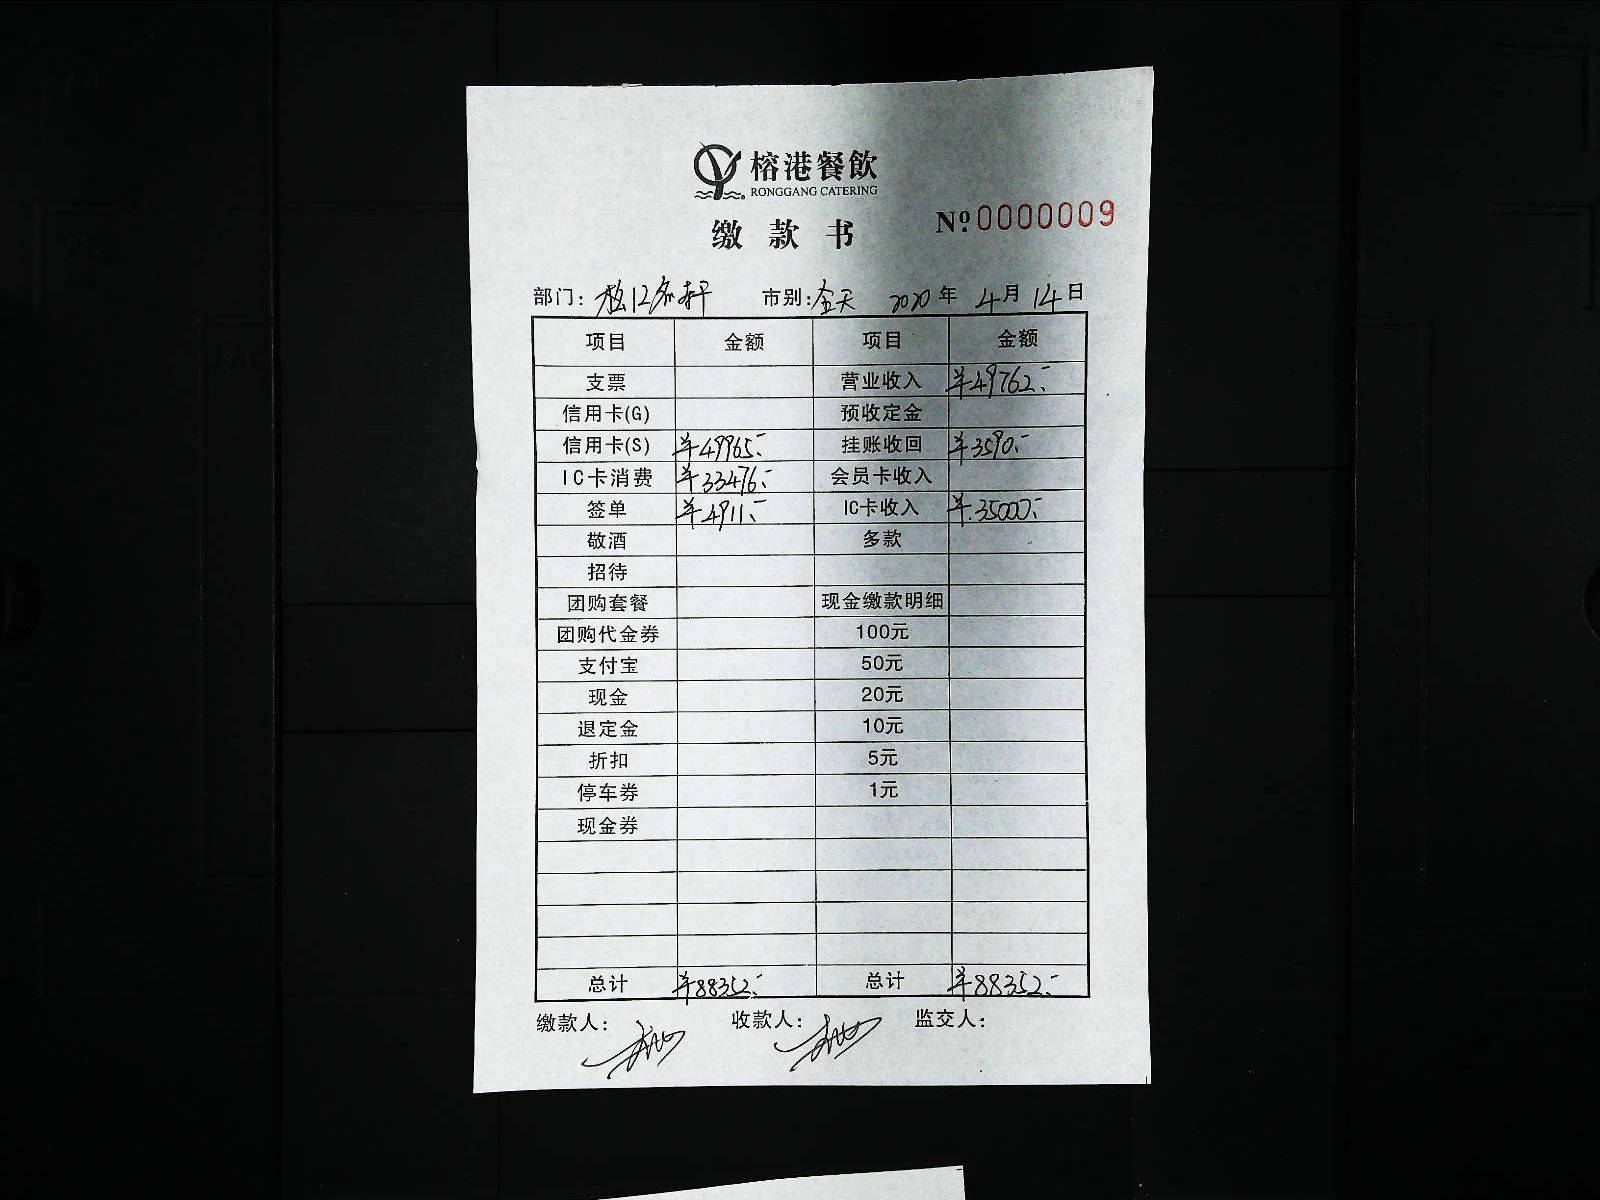 榕港餐飲
RONGGANG CATERING
缴款书
Nº 0000009
部门: 市别:全天 2020年4月14日
项目 金额 项目 金额
支票 营业收入 ¥49762.-
信用卡(G) 预收定金
信用卡(S) ¥49965.- 挂账收回 ¥3590.-
IC卡消费 ¥33476.- 会员卡收入
签单 ¥4911.- IC卡收入 ¥35000.-
敬酒 多款
招待
团购套餐 现金缴款明细
团购代金券 100元
支付宝 50元
现金 20元
退定金 10元
折扣 5元
停车券 1元
现金券
总计 ¥88352.- 总计 ¥88352.-
缴款人: 收款人: 监交人: